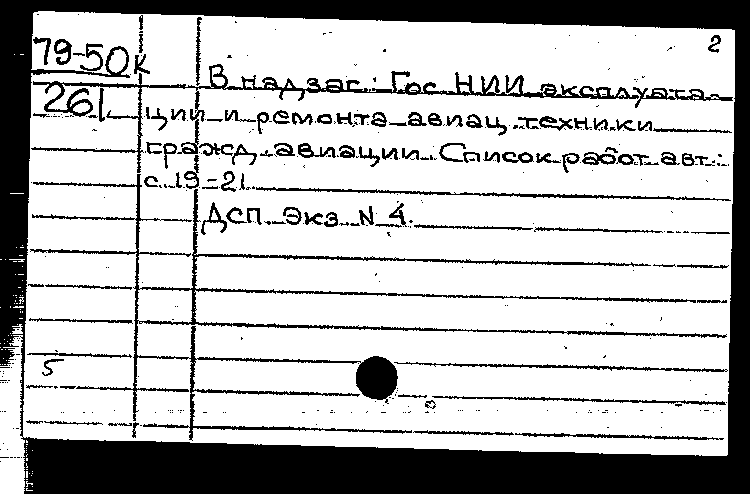 2
79-50к
261
В надзаг.: Гос НИИ эксплуата-
ции и ремонта авиац. техники
гражд. авиации. Список работ авт.:
с. 19-21
ДСП. Экз. N 4.
5